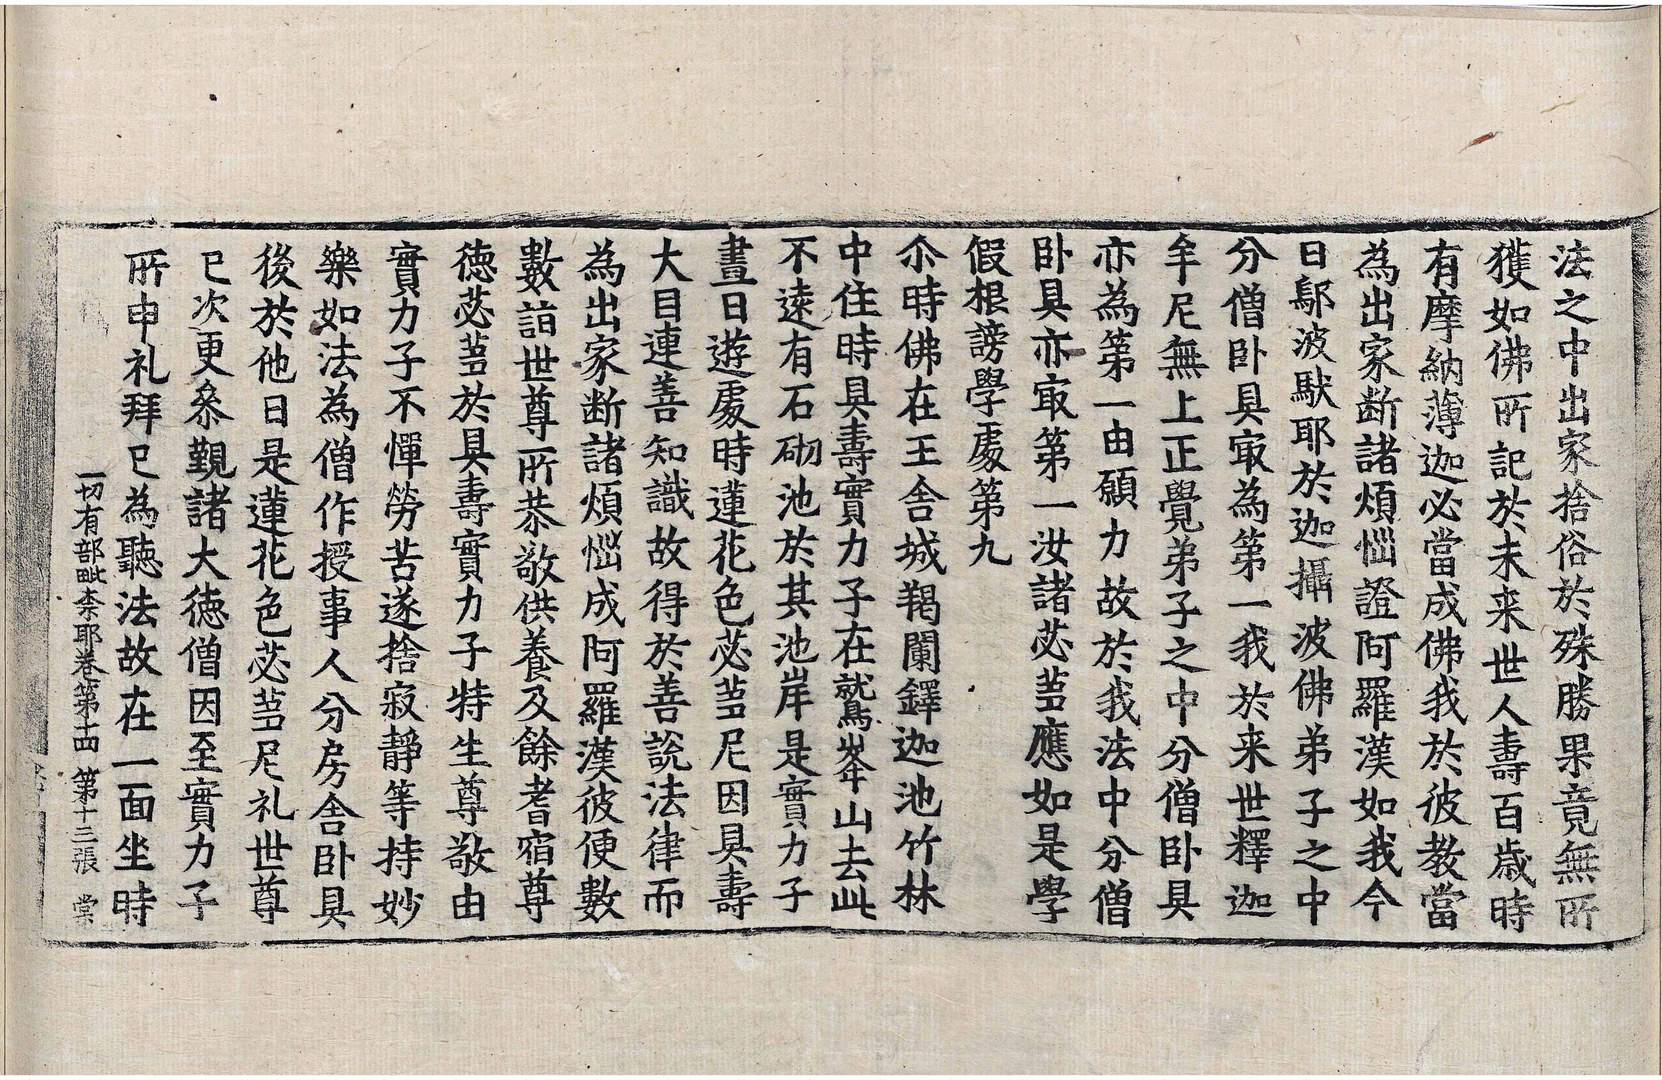 法之中出家捨俗於殊勝果竟無所
獲如佛所記於未来世人壽百歲時
有摩納薄迦必當成佛我於彼教當
為出家断諸煩惱證阿羅漢如我今
日鄔波馱耶於迦攝波佛弟子之中
分僧卧具㝡為第一我於来世釋迦
牟尼無上正覺弟子之中分僧卧具
亦為第一由願力故於我法中分僧
卧具亦㝡第一汝諸苾蒭應如是學
假根謗學處第九
尒時佛在王舍城羯闌鐸迦池竹林
中住時具壽實力子在鷲峯山去此
不遠有石砌池於其池岸是實力子
晝日遊處時蓮花色苾蒭尼因具壽
大目連善知識故得於善說法律而
為出家断諸煩惱成阿羅漢彼便數
數詣世尊所恭敬供養及餘耆宿尊
徳苾蒭於具壽實力子特生尊敬由
實力子不憚勞苦遂捨寂靜等持妙
樂如法為僧作授事人分房舍卧具
後於他日是蓮花色苾蒭尼礼世尊
已次更叅覲諸大徳僧因至實力子
所申礼拜已為聽法故在一面坐時
一切有部毗柰耶卷第十四 第十三張 棠